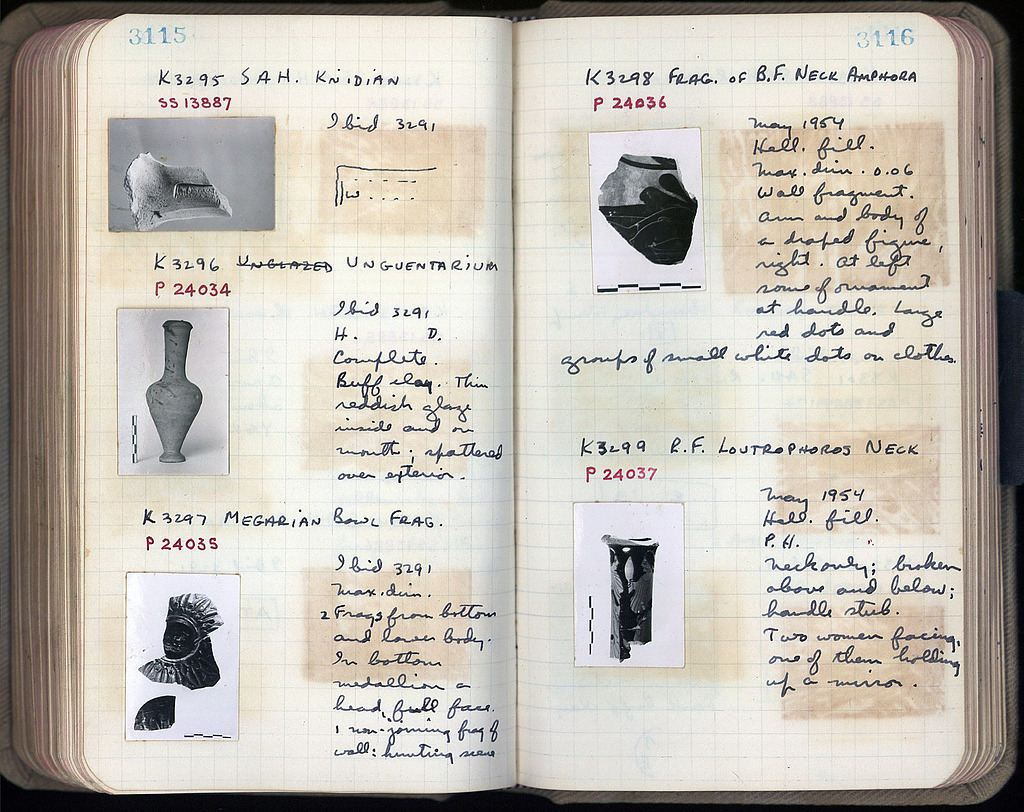 3115
K3295 SAH. KNIDIAN
SS 13887
Ibid 3291
K3296 UNGLAZED UNGUENTARIUM
P 24034
Ibid 3291
H. D.
Complete.
Buff clay. Thin
reddish glaze
inside and on
mouth; spattered
over exterior.
K3297 MEGARIAN BOWL FRAG.
P 24035
Ibid 3291
Max. dim.
2 Frags from bottom
and lower body.
In bottom
medallion a
head, full face.
1 non-joining frag of
wall: hunting scene
3116
K3298 FRAG. OF B.F. NECK AMPHORA
P 24036
May 1954
Hell. fill.
Max. dim. 0.06
Wall fragment.
Arm and body of
a draped figure,
right. At left
some of ornament
at handle. Large
red dots and
groups of small white dots on clothes.
K3299 R.F. LOUTROPHOROS NECK
P 24037
May 1954
Hell. fill.
P. H.
Neck only; broken
above and below;
handle stub.
Two women facing,
one of them holding
up a mirror.